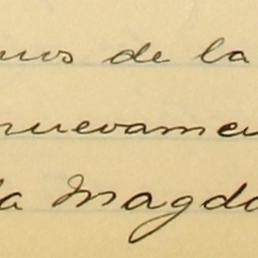 de la
nuevamen
la Magda